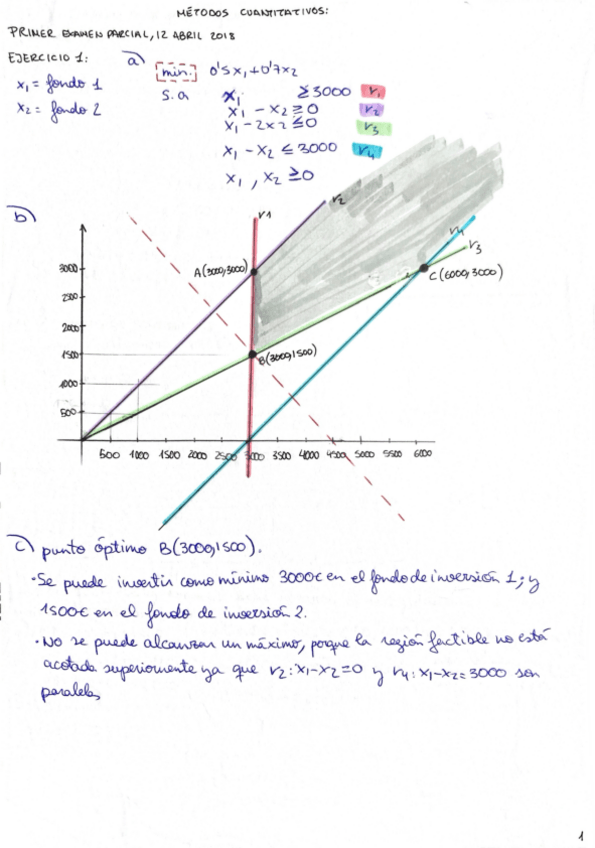 MÉTODOS CUANTITATIVOS:
PRIMER EXAMEN PARCIAL, 12 ABRIL 2018
EJERCICIO 1:
x1 = fondo 1
x2 = fondo 2
a)
min. 0'5x1+0'7x2
s.a x1 ≥3000 r1
x1 - x2 ≥ 0 r2
x1 - 2x2 ≤ 0 r3
x1 - x2 ≤ 3000 r4
x1, x2 ≥0
b)
r1
r2
r4
r3
A(3000,3000)
B(3000,1500)
C(6000,3000)
3000
2500
2000
1500
1000
500
500 1000 1500 2000 2500 3000 3500 4000 4500 5000 5500 6000
c) punto óptimo B(3000,1500).
·Se puede invertir como mínimo 3000€ en el fondo de inversión 1; y
1500€ en el fondo de inversión 2.
·No se puede alcanzar un máximo, porque la región factible no está
acotada superiormente ya que r2: x1-x2=0 y r4: x1-x2=3000 son
paralelas
1